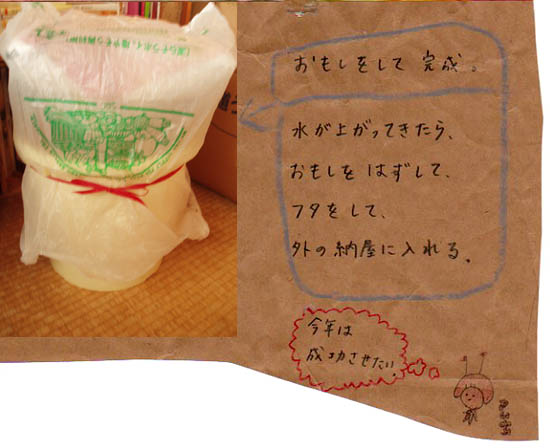 おもしをして 完成。
水が上がってきたら、
おもしを はずして、
フタをして、
外の納屋に入れる。
今年は
成功させたい。